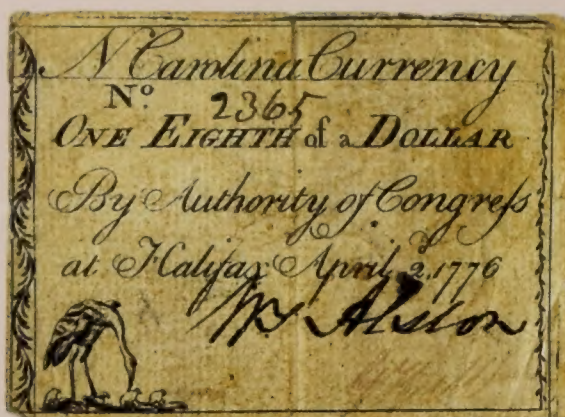 N Carolina Currency
No. 2365
ONE EIGHTH of a DOLLAR
By Authority of Congreſs
at Halifax April 2d. 1776
Wm Alston